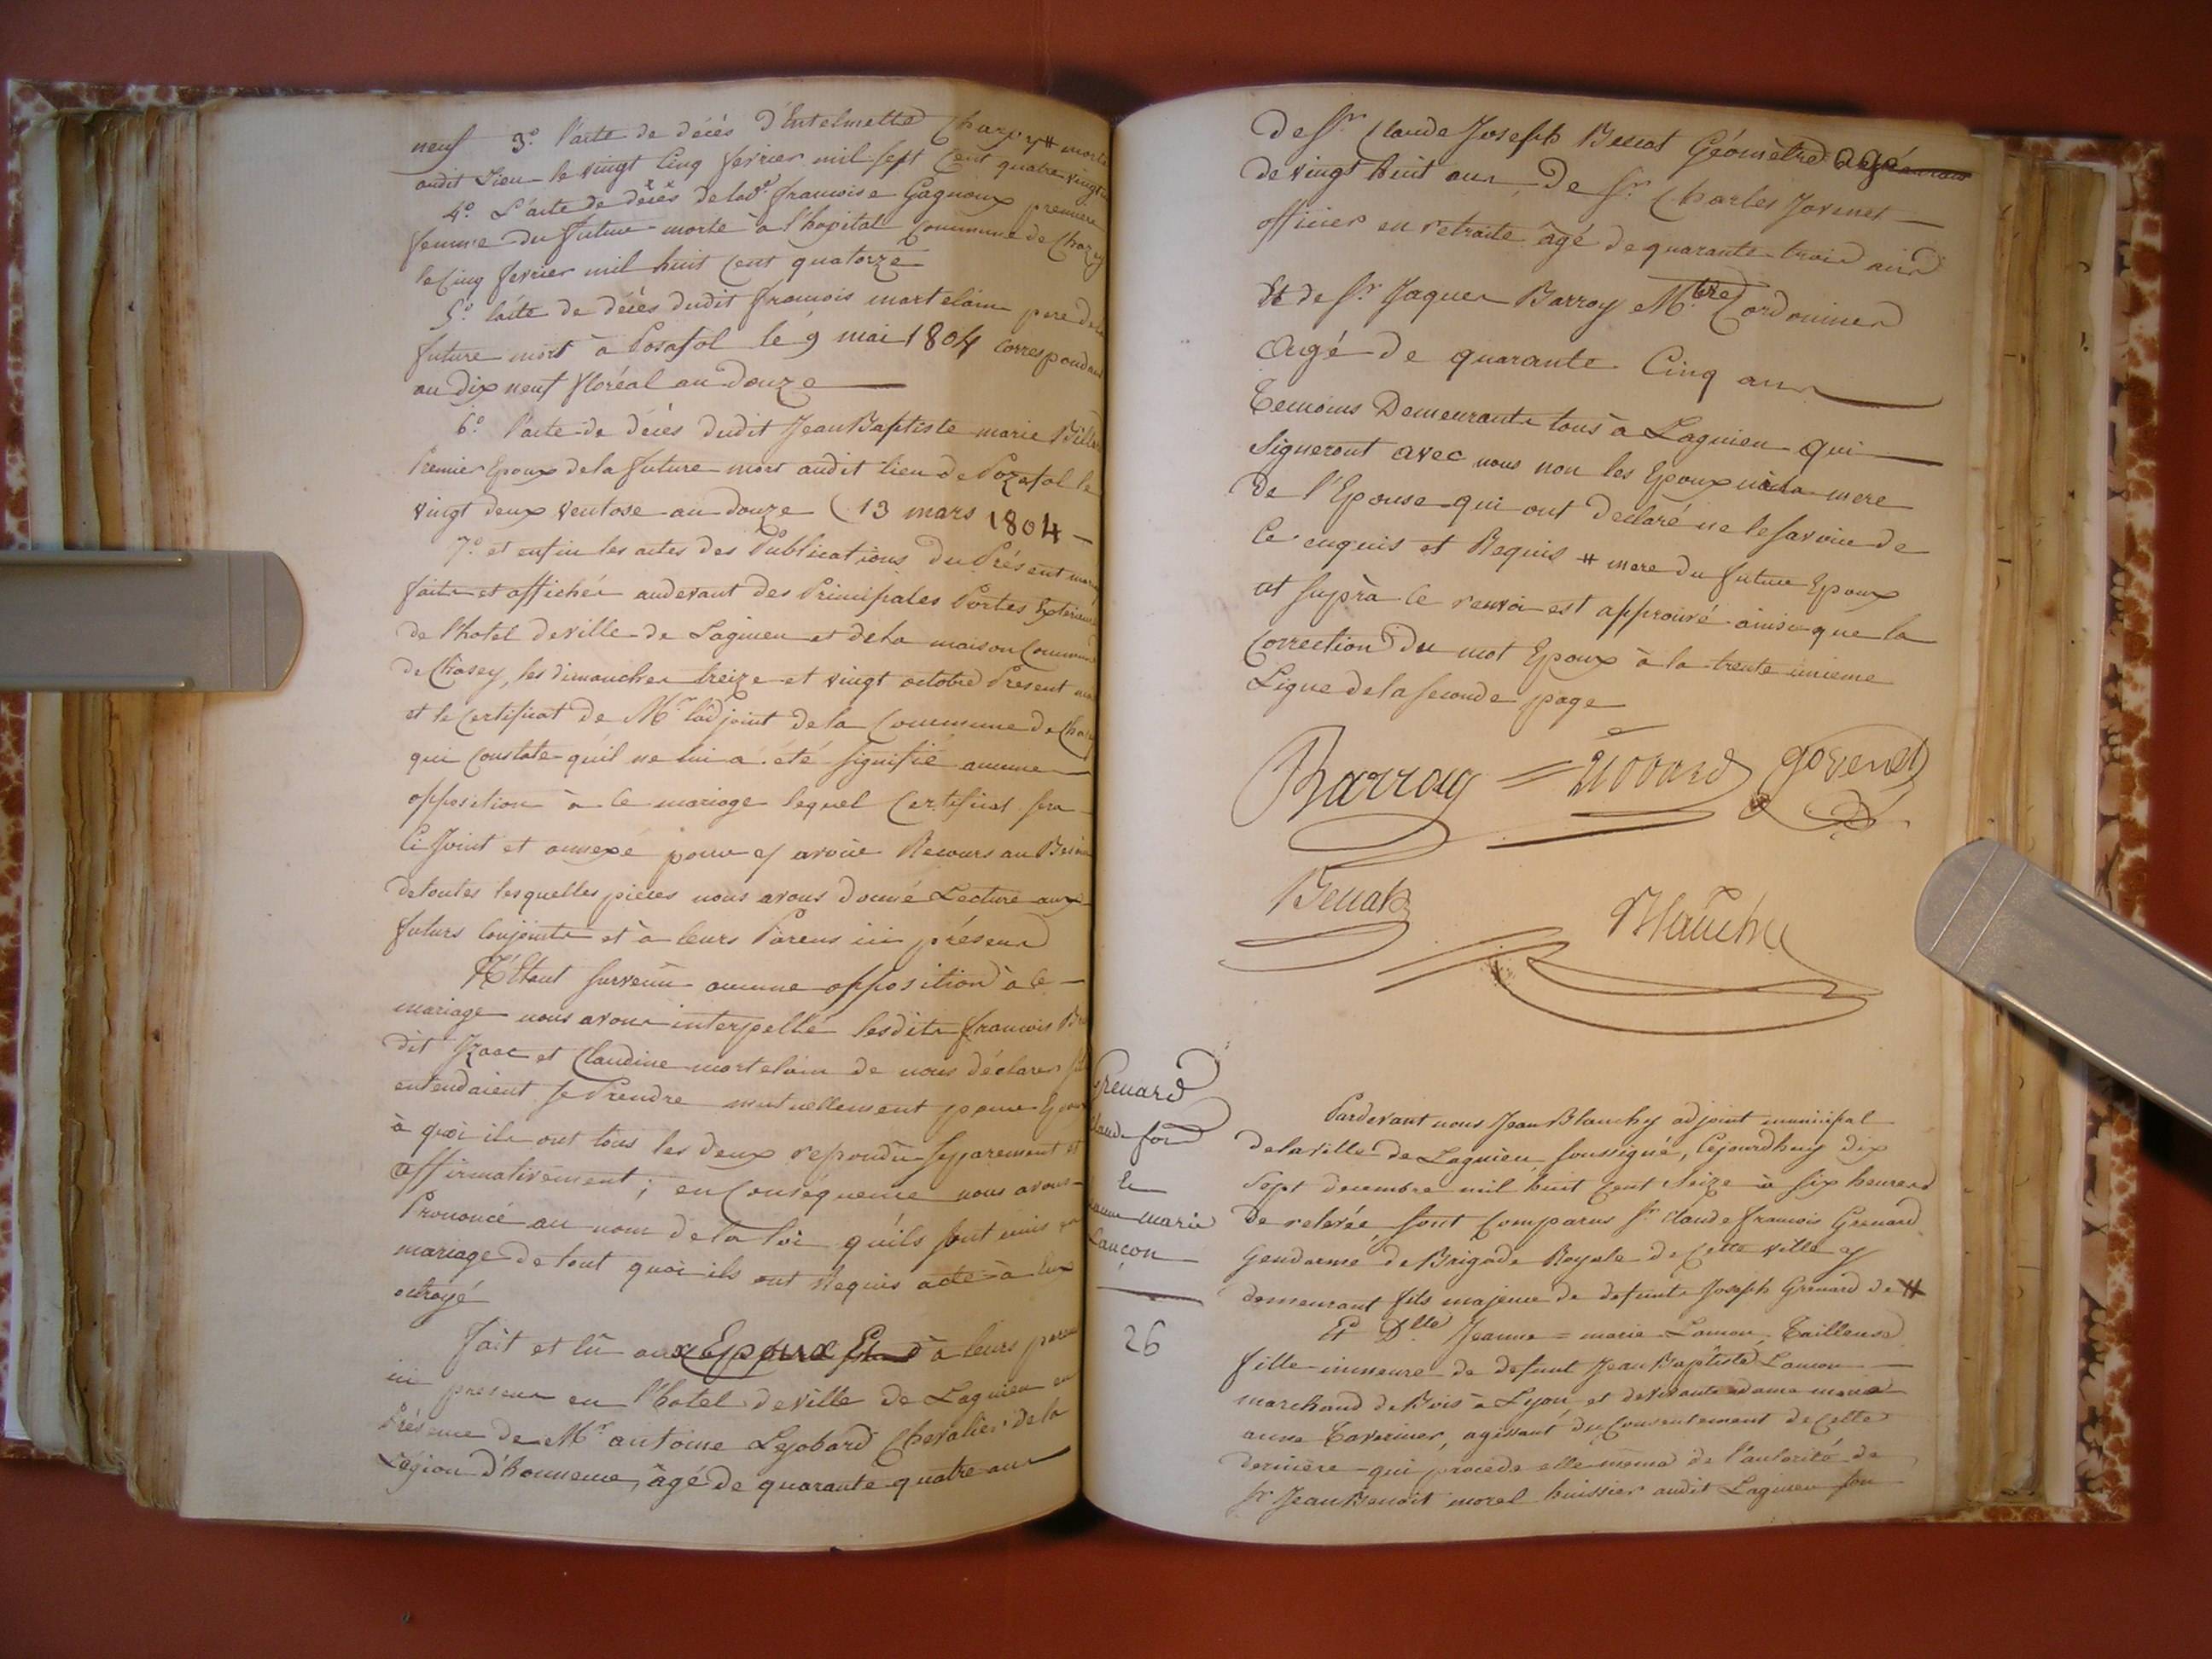 neuf 3.º l'acte de décés d'Entelmette Charvy # morte
audit Lieu le vingt Cinq fevrier mil sept Cent quatre vingt
4.º L'acte de décés de lad.e francoise Gagnoux premiere
femme du futur morte à l'hopital Commune de Chazey
le Cinq fevrier mil huit Cent quatorze
5.º l'acte de décés dudit francois martelain pere de la
future mort à Posafol le 9 mai 1804 correspondant
au dix neuf floréal an Douze
6.º l'acte de décés dudit Jean Baptiste marie
Premier Epoux de la future mort audit lieu de Pozafol le
vingt deux ventose an douze (13 mars 1804 —
7.º et enfin les actes des Publications du Présent
faites et affichés audevant des Principales Portes
de l'hotel de ville de Lagnieu et de la maison Commune
de Chasey, les dimanches treize et vingt octobre Present
et le Certificat de Mr. l'adjoint de la Commune de
qui Constate qu'il ne lui a été signifié aucune
opposition à ce mariage lequel Certificat sera
Ci Joint et annexé pour y avoir Recours au Besoin
de toutes lesquelles pièces nous avons donné Lecture aux
futurs Conjoints et à leurs Parens ici présens
N'Etant survenu aucune opposition à ce
mariage nous avons interpellé lesdits francois
dit Izaac et Claudine martelain de nous déclarer
entendaient se Prendre mutuellement pour
à quoi ils ont tous les deux répondu separement et
affirmativement ; en Conséquence nous avons
Prononcé au nom de la loi qu'ils sont unis en
mariage de tout quoi ils ont Requis acte à Eux
octroyé
fait et lû aux Epoux Et à leurs
ici presens en l'hotel de ville de Lagnieu en
Présence de Mr. antoine Lejobard Chevalier de la
Légion d'honneur, âgé de quarante quatre ans
De Sr. Claude Joseph Benat Géomètre agé
de vingt huit ans, De Sr. Charles Jovenet
officier en retraite âgé de quarante trois ans
Et de Sr. Jaques Barroy Mtre Cordonnier
Agé de quarante Cinq ans
Temoins Demeurants tous à Lagnieu qui
Signeront avec nous non les Epoux ni la mere
De l'Epouse qui ont declaré ne le savoir de
Ce enquis et Requis # mere du futur Epoux
ut suprà Ce renvoi est approuvé ainsi que la
Correction du mot Epoux à la trente unieme
Ligne de la seconde page
Barroy govenet
Benat Blanchy
Grenard
le
marie
Lançon
26
Pardevant nous Jean Blanchy adjoint municipal
de la ville de Lagnieu soussigné, Cejourdhuy dix
Sept decembre mil huit Cent Seize à six heures
de relevée, sont Comparus Sr. Claude francois Grenard
Gendarme de Brigade Royale de Cette ville y
demeurant fils majeur de defunts Joseph Grenard de #
Et Dlle Jeanne = marie Lancon, Tailleuse
fille mineure de defunt Jean Baptiste Lancon
marchand de Bois à Lyon, et de vivante dame marie
anne Tavernier, agissant du Consentement de Cette
derniere qui procede elle même de l'autorité de
Sr Jean Benoit morel huissier audit Lagnieu son